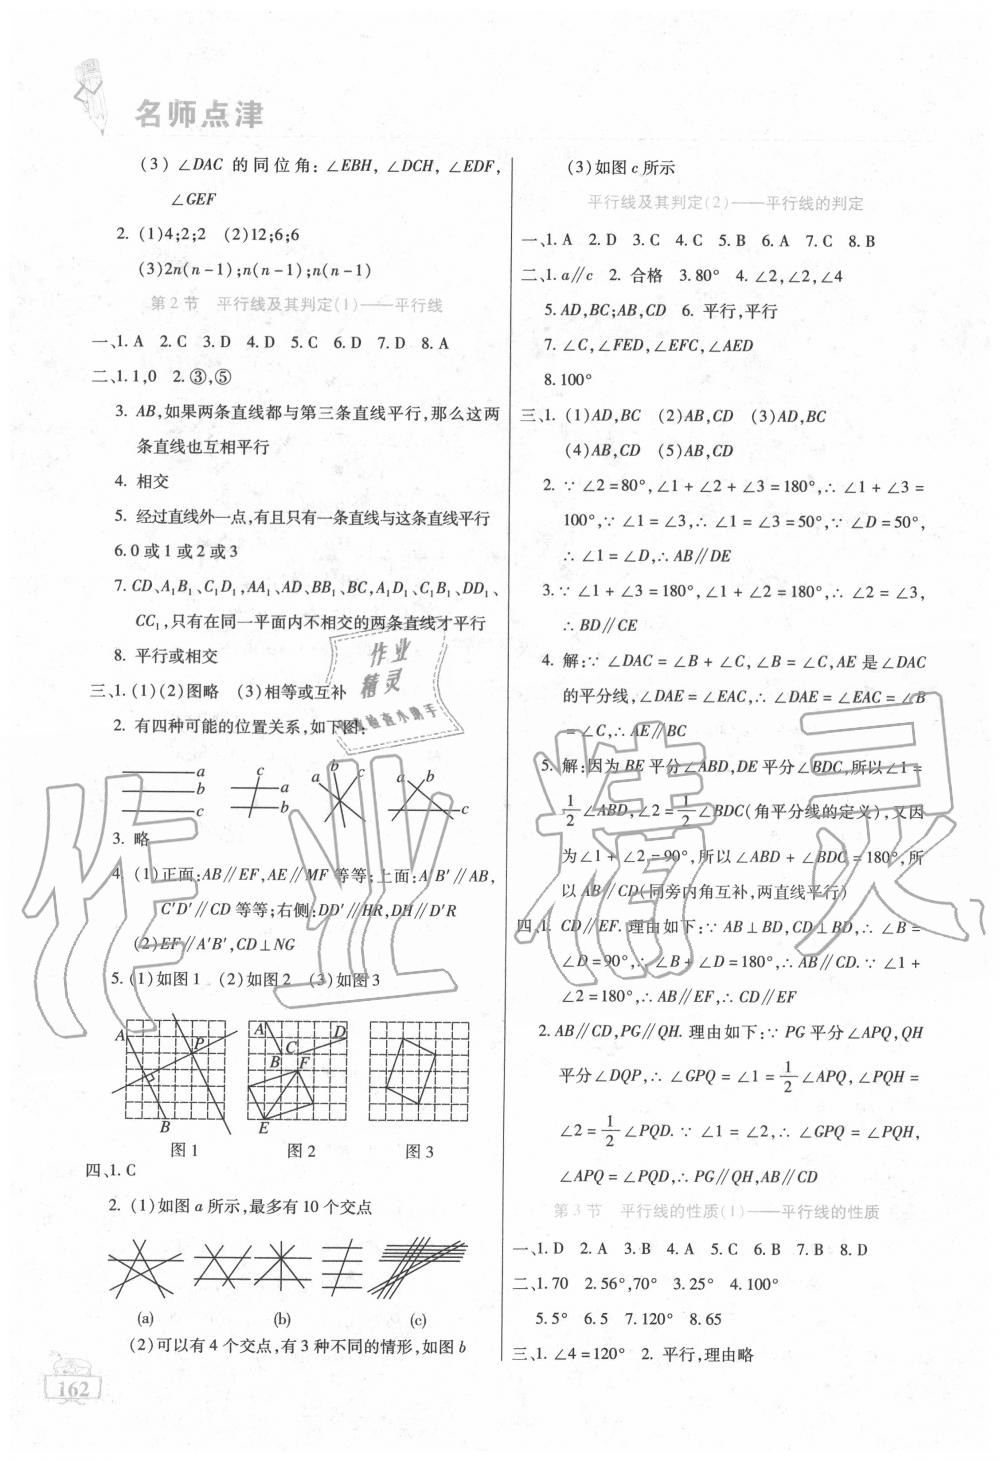 名师点津
(3) ∠DAC 的同位角: ∠EBH, ∠DCH, ∠EDF,
∠GEF
2. (1)4;2;2 (2)12;6;6
(3)2n(n-1);n(n-1);n(n-1)
第2节 平行线及其判定(1)——平行线
一、1. A 2. C 3. D 4. D 5. C 6. D 7. D 8. A
二、1. 1,0 2. ③,⑤
3. AB,如果两条直线都与第三条直线平行,那么这两
条直线也互相平行
4. 相交
5. 经过直线外一点,有且只有一条直线与这条直线平行
6. 0 或 1 或 2 或 3
7. CD、A₁B₁、C₁D₁,AA₁、AD、BB₁、BC,A₁D₁、C₁B₁、DD₁、
CC₁,只有在同一平面内不相交的两条直线才平行
8. 平行或相交
三、1. (1)(2)图略 (3)相等或互补
2. 有四种可能的位置关系,如下图:
a b c
c a b
a b c
a b c
3. 略
4. (1)正面:AB∥EF,AE∥MF 等等;上面:A′B′∥AB,
C′D′∥CD 等等;右侧:DD′∥HR,DH∥D′R
(2)EF∥A′B′,CD⊥NG
5. (1)如图1 (2)如图2 (3)如图3
A P B
A D C B F E
图1 图2 图3
四、1. C
2. (1)如图 a 所示,最多有 10 个交点
(a) (b) (c)
(2)可以有 4 个交点,有 3 种不同的情形,如图 b
162
(3)如图 c 所示
平行线及其判定(2)——平行线的判定
一、1. A 2. D 3. C 4. C 5. B 6. A 7. C 8. B
二、1. a∥c 2. 合格 3. 80° 4. ∠2,∠2,∠4
5. AD,BC;AB,CD 6. 平行,平行
7. ∠C,∠FED,∠EFC,∠AED
8. 100°
三、1. (1)AD,BC (2)AB,CD (3)AD,BC
(4)AB,CD (5)AB,CD
2. ∵ ∠2=80°,∠1+∠2+∠3=180°,∴ ∠1+∠3=
100°,∵ ∠1=∠3,∴ ∠1=∠3=50°,∵ ∠D=50°,
∴ ∠1=∠D,∴ AB∥DE
3. ∵ ∠1+∠3=180°,∠1+∠2=180°,∴ ∠2=∠3,
∴ BD∥CE
4. 解:∵ ∠DAC=∠B+∠C,∠B=∠C,AE 是∠DAC
的平分线,∠DAE=∠EAC,∴ ∠DAE=∠EAC=∠B
=∠C,∴ AE∥BC
5. 解:因为 BE 平分∠ABD,DE 平分∠BDC,所以∠1=
1/2∠ABD,∠2=1/2∠BDC(角平分线的定义),又因
为∠1+∠2=90°,所以∠ABD+∠BDC=180°,所
以 AB∥CD(同旁内角互补,两直线平行)
四、1. CD∥EF. 理由如下:∵ AB⊥BD,CD⊥BD,∴ ∠B=
∠D=90°,∴ ∠B+∠D=180°,∴ AB∥CD.∵ ∠1+
∠2=180°,∴ AB∥EF,∴ CD∥EF
2. AB∥CD,PG∥QH. 理由如下:∵ PG 平分∠APQ,QH
平分∠DQP,∴ ∠GPQ=∠1=1/2∠APQ,∠PQH=
∠2=1/2∠PQD.∵ ∠1=∠2,∴ ∠GPQ=∠PQH,
∠APQ=∠PQD,∴ PG∥QH,AB∥CD
第3节 平行线的性质(1)——平行线的性质
一、1. D 2. A 3. B 4. A 5. C 6. B 7. B 8. D
二、1. 70 2. 56°,70° 3. 25° 4. 100°
5. 5° 6. 5 7. 120° 8. 65
三、1. ∠4=120° 2. 平行,理由略
作业
精灵
作业精灵